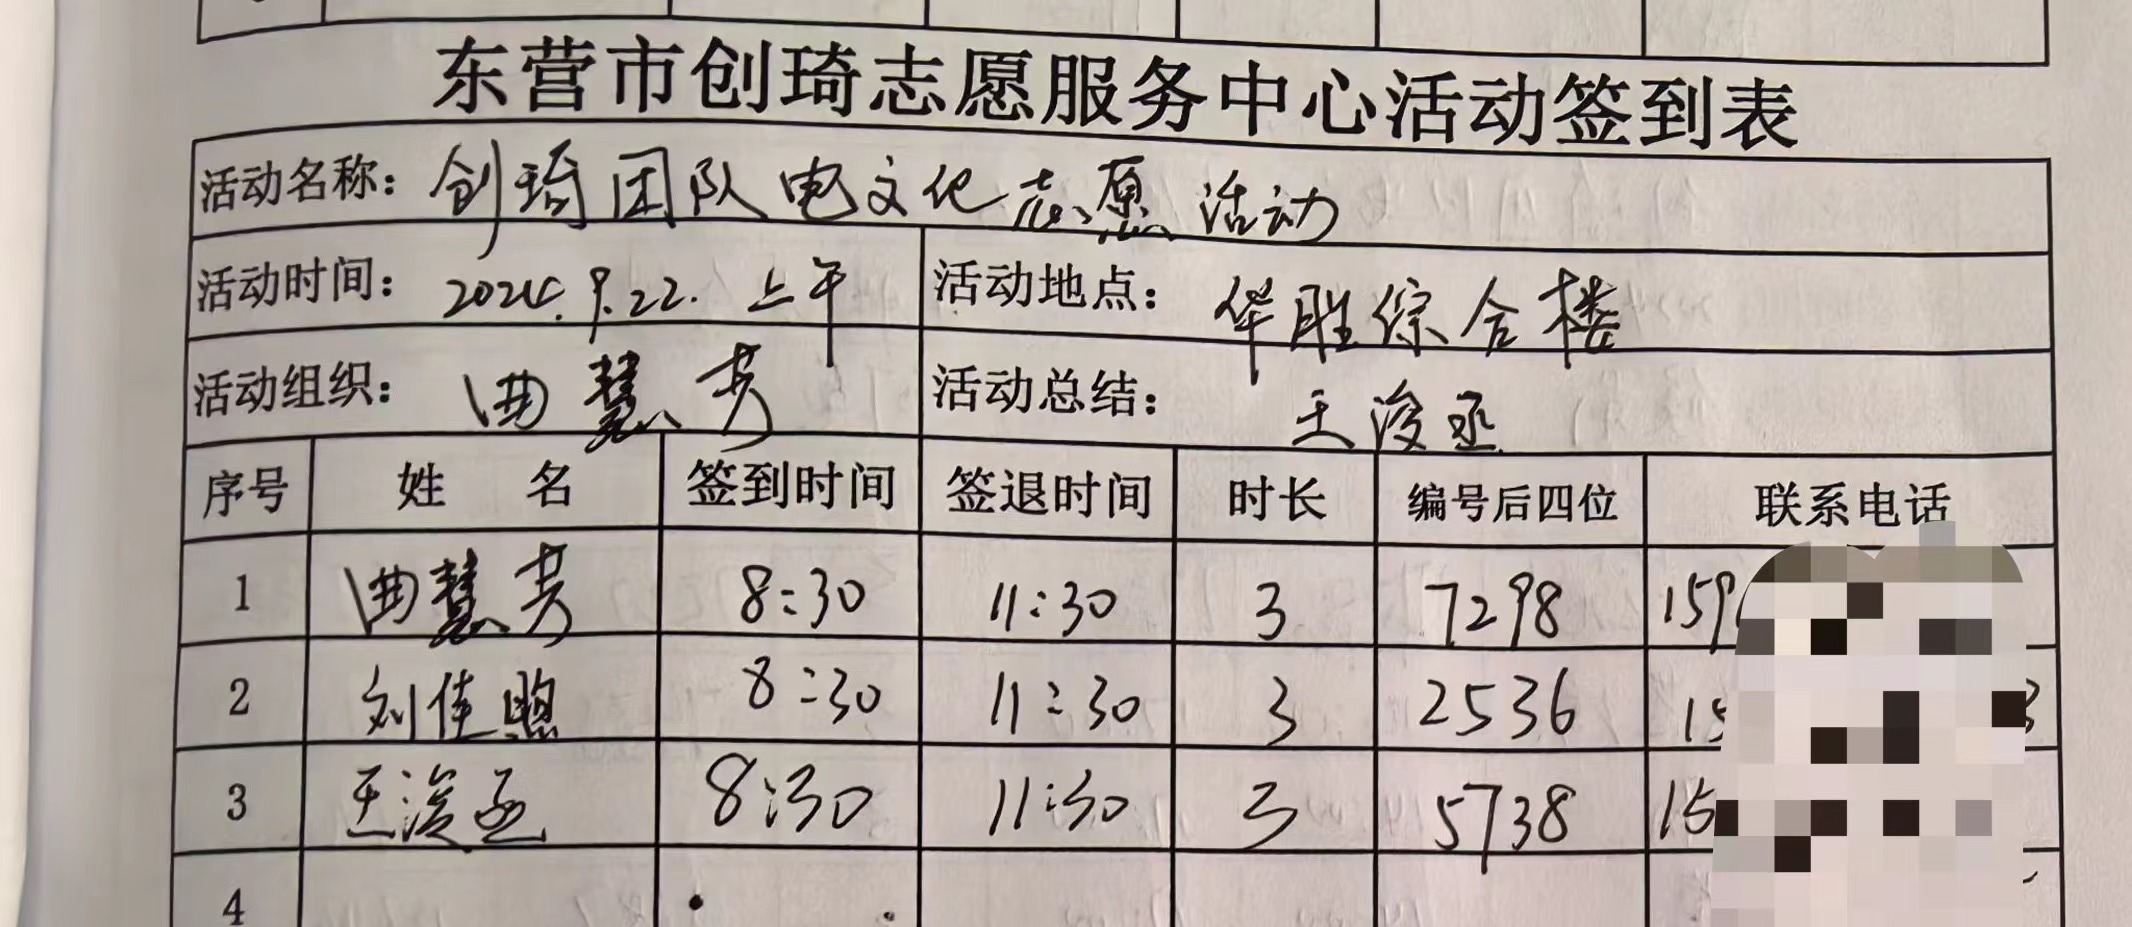 东营市创琦志愿服务中心活动签到表
活动名称：创琦团队电文化志愿活动
活动时间：2024.9.22.上午 活动地点：华胜综合楼
活动组织：曲慧芳 活动总结：王浚丞
序号 姓名 签到时间 签退时间 时长 编号后四位 联系电话
1 曲慧芳 8:30 11:30 3 7298 159
2 刘佳煦 8:30 11:30 3 2536 15 3
3 王浚丞 8:30 11:30 3 5738 15
4